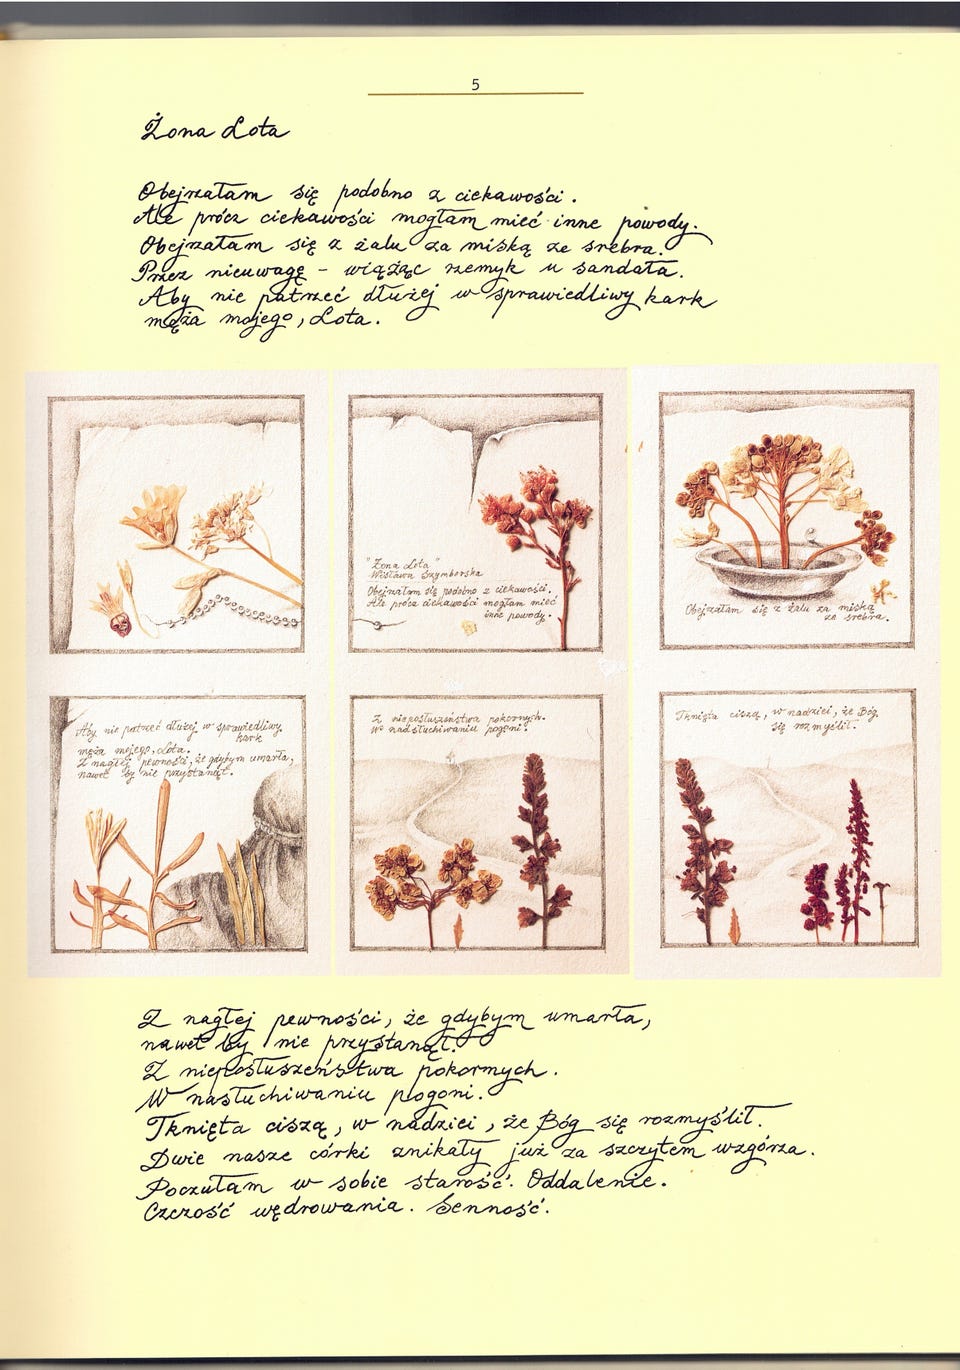 5
Żona Lota
Obejrzałam się podobno z ciekawości.
Ale prócz ciekawości mogłam mieć inne powody.
Obejrzałam się z żalu za miską ze srebra.
Przez nieuwagę – wiążąc rzemyk u sandała.
Aby nie patrzeć dłużej w sprawiedliwy kark
męża mojego, Lota.
"Żona Lota"
Wisława Szymborska
Obejrzałam się podobno z ciekawości.
Ale prócz ciekawości mogłam mieć
inne powody.
Obejrzałam się z żalu za miską
ze srebra.
Aby nie patrzeć dłużej w sprawiedliwy
kark
męża mojego, Lota.
Z nagłej pewności, że gdybym umarła,
nawet by nie przystanął.
Z nieposłuszeństwa pokornych.
W nadsłuchiwaniu pogoni.
Tknięta ciszą, w nadziei, że Bóg
się rozmyślił.
Z nagłej pewności, że gdybym umarła,
nawet by nie przystanął.
Z nieposłuszeństwa pokornych.
W nasłuchiwaniu pogoni.
Tknięta ciszą, w nadziei, że Bóg się rozmyślił.
Dwie nasze córki znikały już za szczytem wzgórza.
Poczułam w sobie starość. Oddalenie.
Czczość wędrowania. Senność.